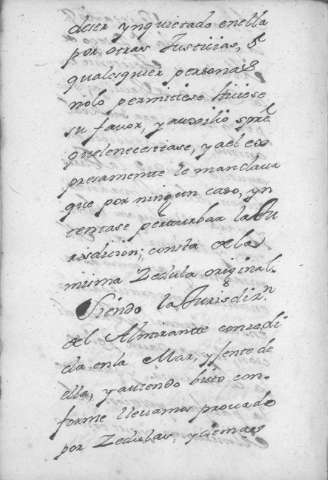 decer ynquietado enella
por otras Justicias, o
qualesquier personas
nolo permitiese hiziese
su favor, y auxilio spre
quelenecesitase, yael ex
presamente le mandava
que por ningun caso, yn
tentase perturbar la Ju
risdicion; consta dela
misma Zedula original.
Siendo la Jurisdizn
del Almirante conzedi
da enla Mar, y gente de
ella, y auiendo buso con
forme llevamos provado
por Zedulas, y demas